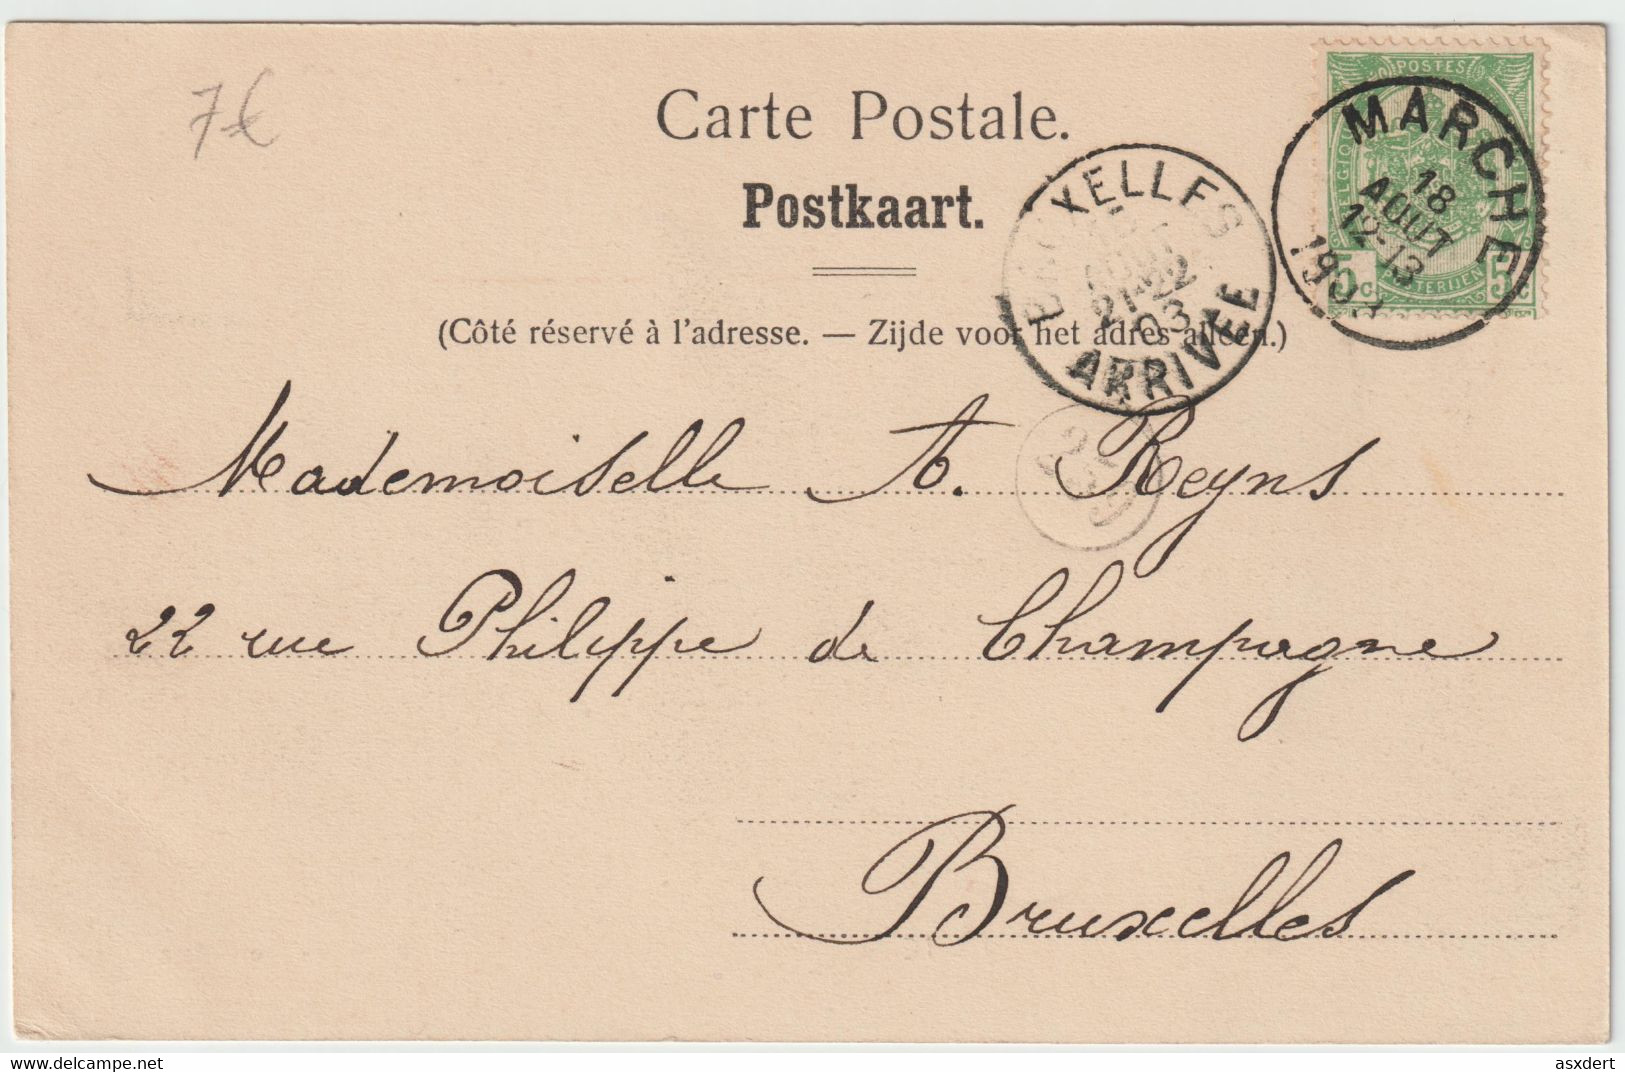 7€
Carte Postale.
Postkaart.
(Côté réservé à l'adresse. — Zijde voor het adres alleen.)
POSTES
5c 5c
MARCHE
18
AOUT
12-13
BRUXELLES
21-22
03
ARRIVÉE
Mademoiselle A. Reyns
22 rue Philippe de Champagne
Bruxelles
www.delcampe.net
asxdert